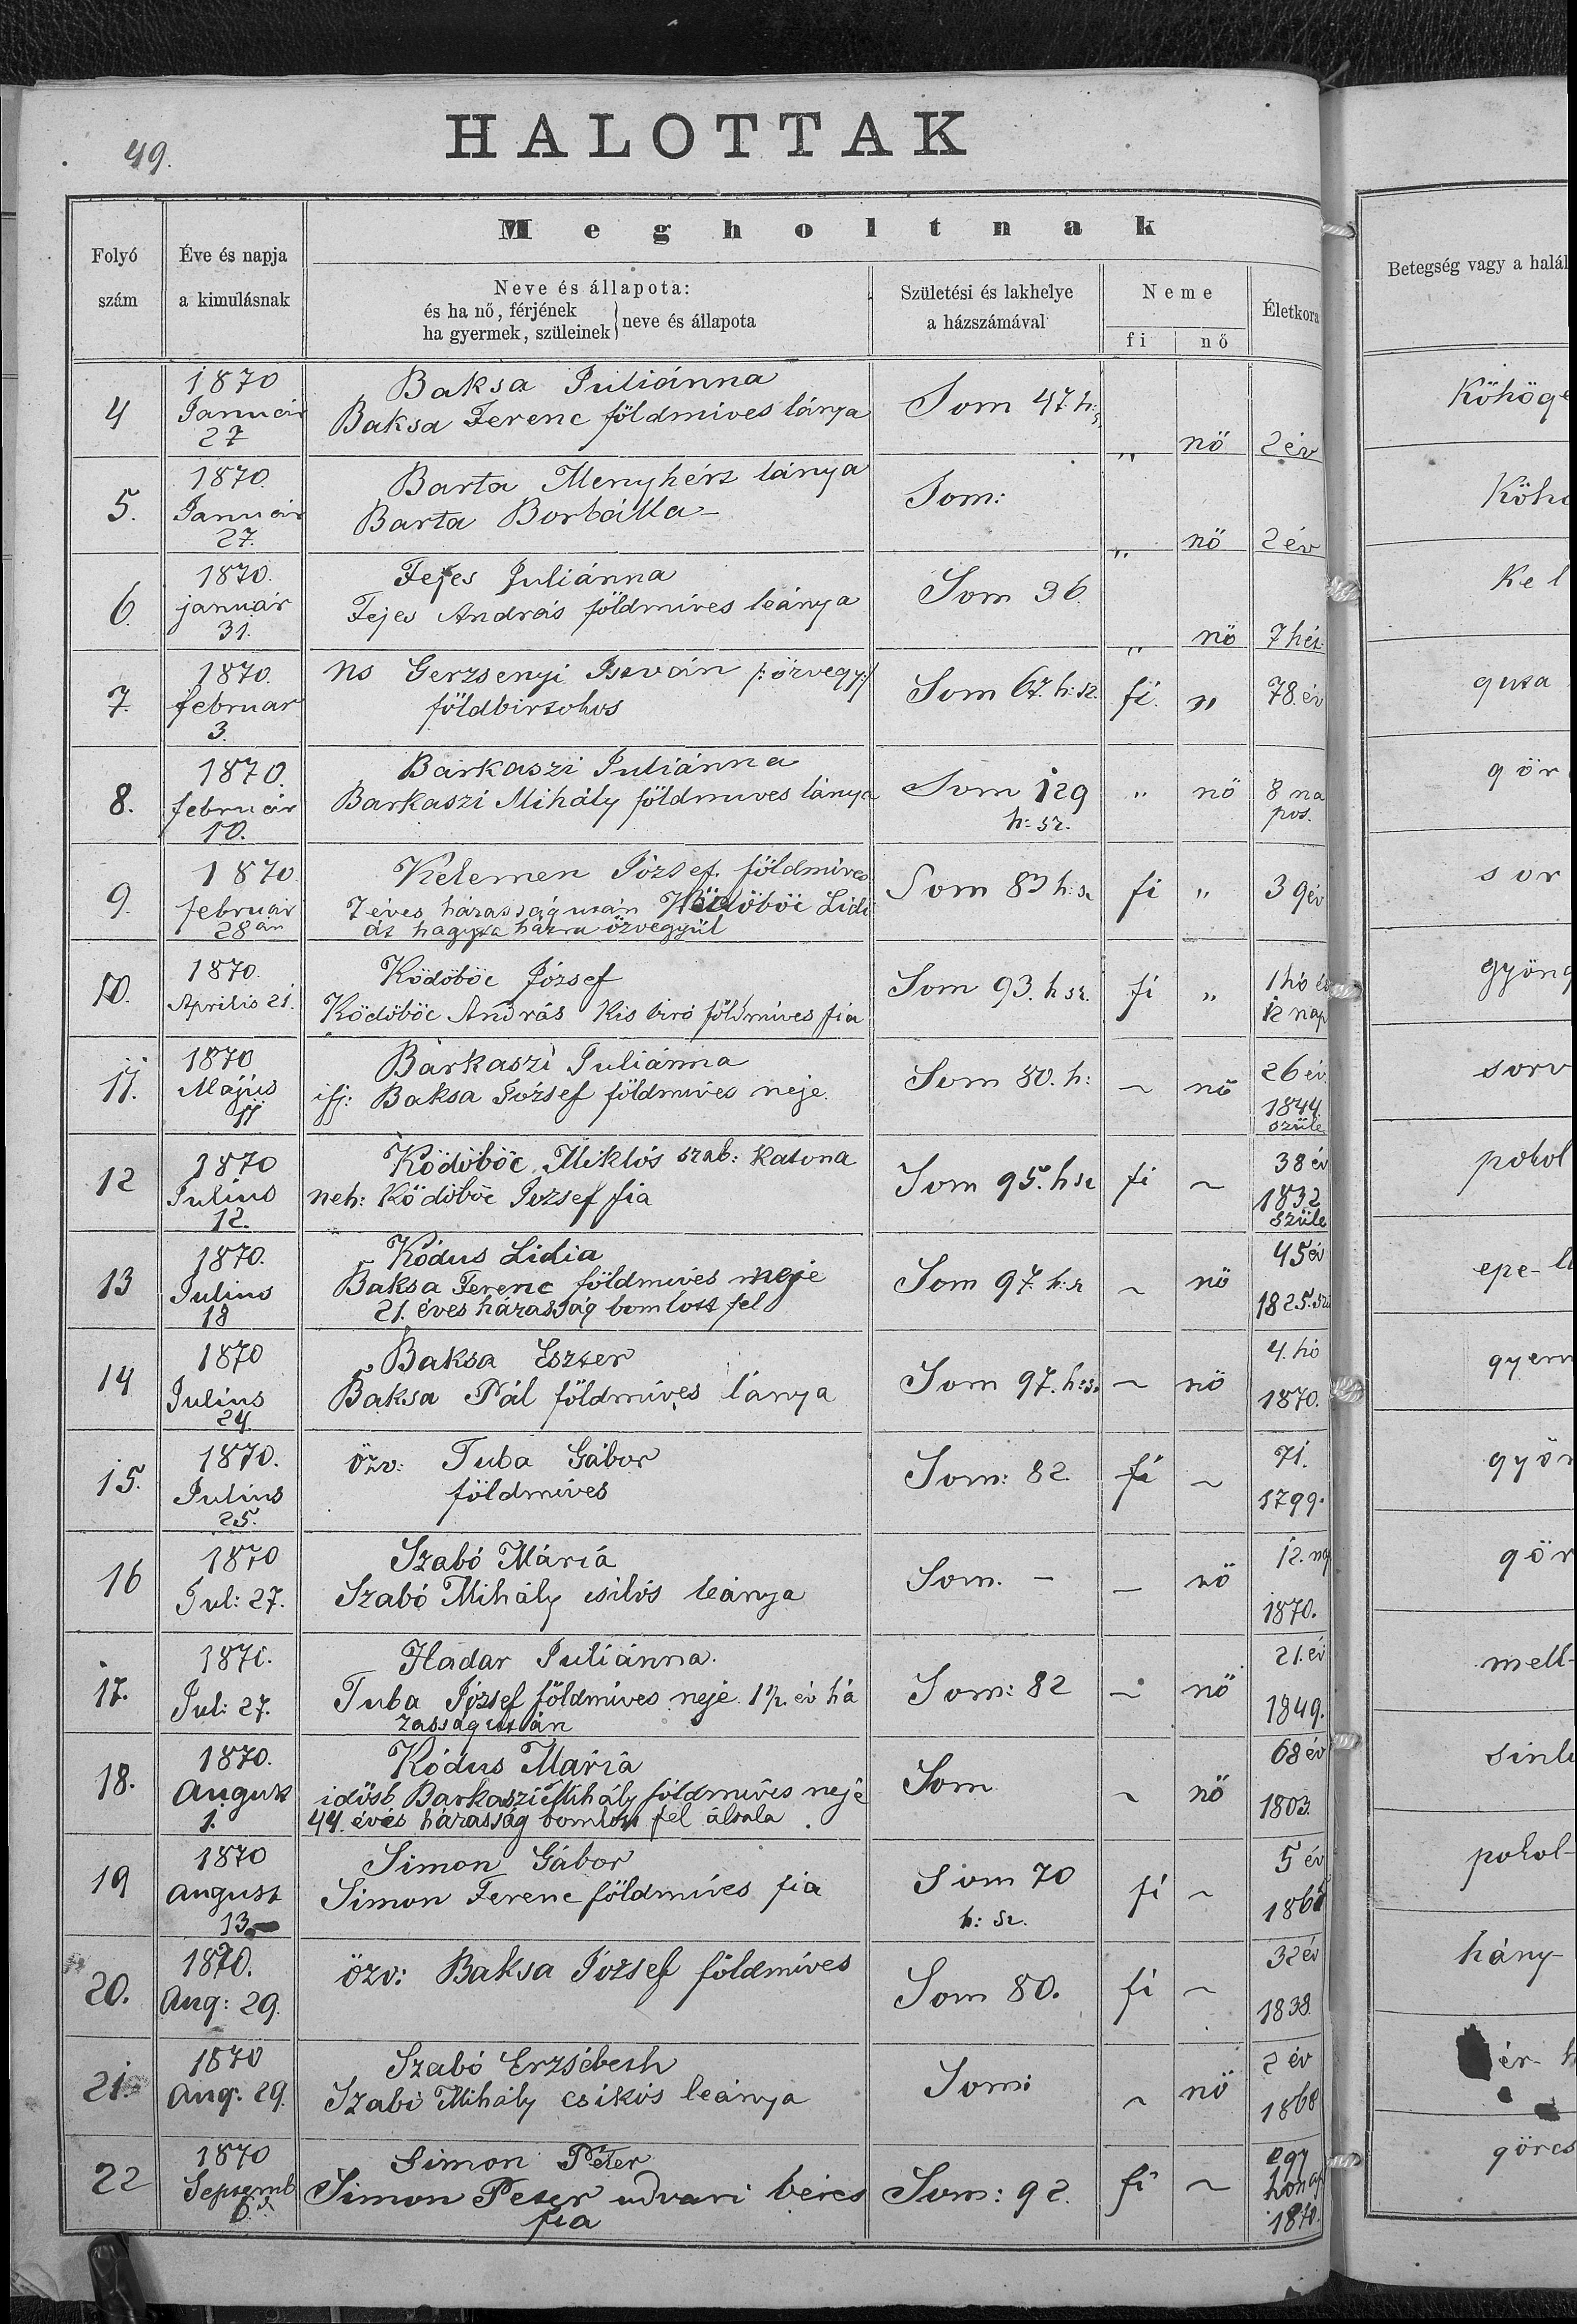 HALOTTAK
49.
Megholtnak
Folyó szám
Éve és napja a kimulásnak
Neve és állapota:
és ha nő, férjének
ha gyermek, szüleinek } neve és állapota
Születési és lakhelye a házszámával
Neme
fi nő
Életkora
Betegség vagy a halál
4 1870 Január 27
Baksa Juliánna
Baksa Ferenc földmíves lánya
Som 47. h: „ nő 2 év
Köhöge
5. 1870. Január 27.
Barta Menyhért lánya
Barta Borbálla-
Som: „ nő 2 év
Köhö
6. 1870. január 31.
Fejes Juliánna
Fejes András földmíves leánya
Som 36. „ nő 7 hét
Kel
7. 1870. február 3.
ns Gerzsenyi István /:özvegy:/
földbirtokos
Som 67. h: sz. fi. „ 78. év
guta
8. 1870. február 10.
Barkaszi Juliánna
Barkaszi Mihály földmuves lánya
Som 129 h: sz. „ nő 8 na pos.
gör
9. 1870. február 28 án
Kelemen József földmíves
7 éves házasság után Ködöböc Lidi
át hagyta hátra özvegyül
Som 83 h: sz fi „ 39 év
sor
10. 1870. Aprilis 21.
Ködöböc József
Ködöböc András Kis biró földmíves fia
Som 93. h sz. fi „ 1 hó és 12 nap
gyöng
11. 1870 Május 11
Barkaszi Juliánna
ifj: Baksa József földmíves neje.
Som 80. h: ~ nő 26 év. 1844. szüle
sorv
12 1870 Julius 12.
Ködöböc Miklós szab: katona
neh: Ködöböc József fia
Som 95. h sz fi ~ 38 év 1832 szüle
pokol
13 1870. Julius 18
Kódus Lidia
Baksa Ferenc földmíves neje
21. éves házasság bomlott fel
Som 97. h: sz ~ nő 45 év 1825. szü
epe-
14 1870 Julius 24
Baksa Eszter
Baksa Pál földmíves lánya
Som 97. h: sz ~ nő 4. hó 1870.
gyerm
15. 1870. Julius 25.
özv: Tuba Gábor
földmíves
Som: 82. fi ~ 71. 1799.
gyön
16 1870 Jul: 27.
Szabó Mária
Szabó Mihály csikós leánya
Som. - — nő 12. na 1870.
gör
17. 1870. Jul: 27.
Hadar Juliánna.
Tuba József földmíves neje 1 1/2. év há
zasság után
Som: 82 ~ nő 21. év 1849.
mell-
18. 1870. August 1.
Kódus Mária
idősb Barkaszi Mihály földmíves neje
44. éves házasság bomlott fel általa.
Som ~ nő 68 év 1803.
sinl
19 1870 August 13
Simon Gábor
Simon Ferenc földmíves fia
Som 70 h: sz. fi ~ 5 év 1865
pokol-
20. 1870. Aug: 29.
özv: Baksa József földmíves
Som 80. fi ~ 32 év 1838.
hány-
21. 1870 Aug: 29.
Szabó Erzsébeth
Szabó Mihály csikós leánya
Som: ~ nő 2 év 1868
ér- h
22 1870 Septemb
Simon Péter
Simon Peter udvari béres
fia
Som: 92. fi ~ egy hónap 1870.
görcs